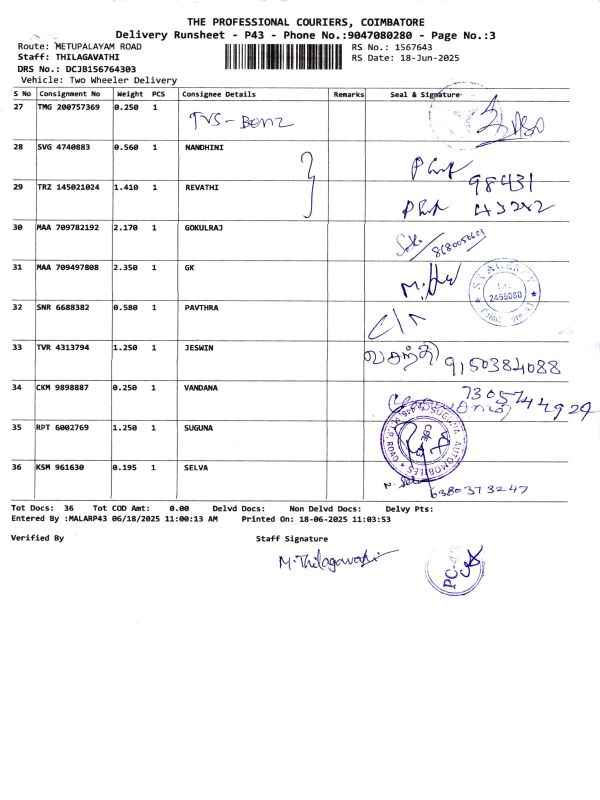 THE PROFESSIONAL COURIERS, COIMBATORE
Delivery Runsheet - P43 - Phone No.:9047080280 - Page No.:3
Route: METUPALAYAM ROAD RS No.: 1567643
Staff: THILAGAVATHI RS Date: 18-Jun-2025
DRS No.: DCJB156764303
Vehicle: Two Wheeler Delivery
S No Consignment No Weight PCS Consignee Details Remarks Seal & Signature
27 TMG 200757369 0.250 1 TVS-Benz
28 SVG 4740883 0.560 1 NANDHINI
98431
29 TRZ 145021024 1.410 1 REVATHI
43242
30 MAA 709782192 2.170 1 GOKULRAJ
31 MAA 709497808 2.350 1 GK
SK AGENCY
2455080
32 SNR 6688382 0.580 1 PAVTHRA
33 TVR 4313794 1.250 1 JESWIN வசந்தி 9150384088
34 CKM 9898887 0.250 1 VANDANA 7305744929
35 RPT 6002769 1.250 1 SUGUNA
SUGUNA AUTOMOBILES
CBE
36 KSM 961630 0.195 1 SELVA 6380373247
Tot Docs: 36 Tot COD Amt: 0.00 Delvd Docs: Non Delvd Docs: Delvy Pts:
Entered By :MALARP43 06/18/2025 11:00:13 AM Printed On: 18-06-2025 11:03:53
Verified By Staff Signature
M.Thilagavathi